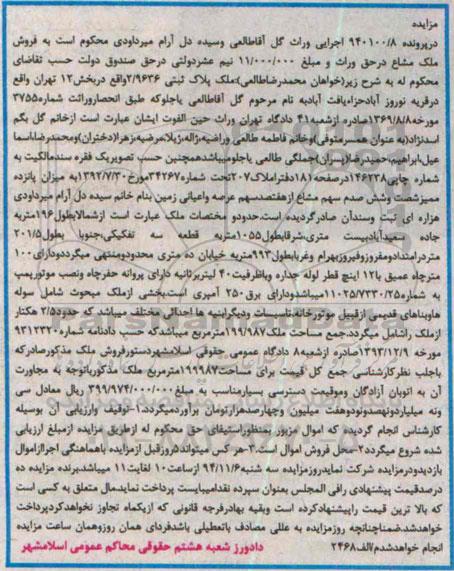 مزایده
درپرونده ۹۴۰۱۰۰/۸ اجرایی وراث گل آقاطالعی وسیده دل آرام میرداودی محکوم است به فروش
ملک مشاع درحق وراث و مبلغ ۱۱/۰۰۰/۰۰۰ نیم عشردولتی درحق صندوق دولت حسب تقاضای
محکوم له به شرح زیر(خواهان محمدرضاطالعی):ملک پلاک ثبتی ۲/۹۶۳۶واقع دربخش۱۲ تهران واقع
درقریه نوروز آبادحزاءیافت آبادبه نام مرحوم گل آقاطالعی یاجلوکه طبق انحصاروراثت شماره۳۷۵۵
مورخه۱۳۶۹/۸/۸صادره ازشعبه۴۱ دادگاه تهران وراث حین الفوت ایشان عبارت است ازخانم گل بگم
اسدنژاد(به عنوان همسرمتوفی)وخانم فاطمه طالعی وراضیه،ژاله،ژیلا،مرضیه،زهرا(دختران)ومحمدرضااسما
عیل،ابراهیم،حمیدرضا(پسران)جملگی طالعی یاجلومیباشدهمچنین حسب تصویریک فقره سندمالکیت به
شماره چاپی۱۴۶۲۳۸درصفحه۱۸۱دفتراملاک۲۰۷تحت شماره۳۴۲۶۷مورخ۱۳۹۲/۷/۳۰به میزان پانزده
ممیزشصت وشش صدم سهم مشاع ازهفتصدسهم عرصه واعیانی زمین بنام خانم سیده دل آرام میرداودی
هزاره ای ثبت وسندآن صادرگردیده است.حدودو مختصات ملک عبارت است ازشمالابطول۱۹۶متربه
جاده سعیدآبادبیست متری،شرقابطول۱۰۵۵متربه قطعه سه تفکیکی،جنوبا بطول ۲۰۱/۵
متردرامتدادومفروزوفیروزبهرام وغربابطول۹۹۳متربه خیابان ده متری محدودومنتهی میگردددودارای۱۰۰
مترچاه عمیق با۱۲ اینچ قطر لوله جداره وباظرفیت۴۰ لیتربرثانیه دارای پروانه حفرچاه ونصب موتورپمپ
به شماره۱۱۰۲۵/۷۳۳۰/۲۵میباشدودارای برق۲۵۰ آمپری است.بخشی ازملک مبحوث شامل سوله
هاوبناهای قدیمی ازقبیل موتورخانه،تاسیسات ودیگرابنیه ها احداثی مختلف میباشد که حدود۲/۵ هکتار
ازملک راشامل میگردد.جمع مساحت ملک۱۹۹/۹۸۷مترمربع میباشدکه حسب دادنامه شماره۹۳۱۲۳۲۰
مورخه ۱۳۹۳/۱۲/۹صادره ازشعبه۸ دادگاه عمومی حقوقی اسلامشهردستورفروش ملک مذکورصادرکه
باجلب نظرکارشناسی جمع کل قیمت برای مساحت۱۹۹۹۸۷مترمربع ملک مذکورباتوجه به مجاورت
آن به اتوبان آزادگان وموقعیت دسترسی بسیارمناسب به مبلغ۳۹۹/۹۷۴/۰۰۰/۰۰۰ ریال معادل سی
ونه میلیاردونهصدونودوهفت میلیون وچهارصدهزارتومان برآوردمیگردد.۱-توقیف وارزیابی آن بوسیله
کارشناس انجام گردیده که اموال مزبور بمنظوراستیفای حق محکوم له ازطریق مزایده ازمبلغ ارزیابی
شده شروع میگردد۲-محل فروش اموال است.۳-هر کس میتواند۵روزقبل ازمزایده باهماهنگی اجرااز‌اموال
بازدیدودرمزایده شرکت نماید.روزمزایده سه شنبه۹۴/۱۱/۶ ازساعت۱۰ لغایت۱۱ میباشد.برنده مزایده ده
درصدقیمت پیشنهادی رافی المجلس بعنوان سپرده نقدامیبایست پرداخت نماید.مال متعلق به کسی است
که بالا ترین قیمت راپیشنهادکرده است وبقیه بهادرفرجه قانونی که ازیکماه تجاوز نخواهدکردپرداخت
خواهدشد.ضمناچنانچه روزمزایده به عللی مصادف باتعطیلی باشدفردای همان روزوهمان ساعت مزایده
انجام خواهدشدم/الف۲۴۶۸ دادورز شعبه هشتم حقوقی محاکم عمومی اسلامشهر